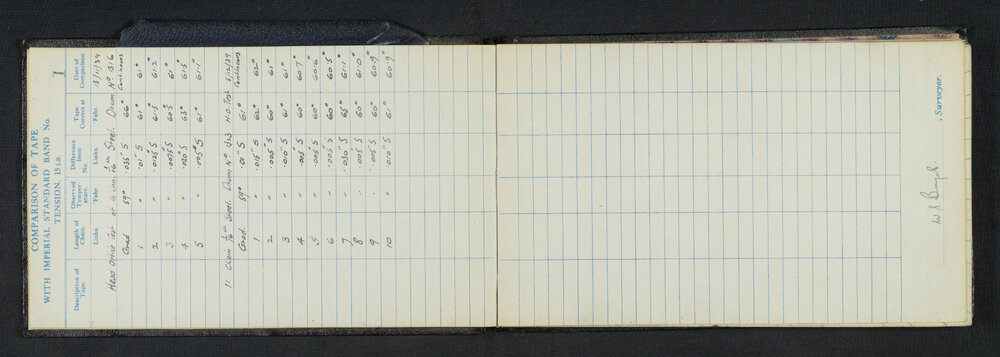 COMPARISON OF TAPE
WITH IMPERIAL STANDARD BAND No.
TENSION, 15 LB.
1
Description of Tape. Length of Chain. Links. Observed Temperature Fahr. Difference from No. Links. Tape Correct at Fahr. Date of Comparison.
13/11/39
Head Office Test of 6 chn. 1/16th Steel. Drum No 1316
Grad 59° .035" S 66° Continuous
1 " .01" S 61° 61°
2 " .0125" S 61.5° 61.2°
3 " .0075" S 60.5° 61°
4 " .020" S 63° 61.5°
5 " .005" S 61° 61.1°
11 Chain 1/16th Steel. Drum No 1323 H.O. Test 5/12/39
Grad. 59° .01" S 61° Continuous
1 " .015" S 62° 62°
2 " .005" S 60° 61°
3 " .010" S 61° 61°
4 " .005" S 60° 60.7°
5 " .005" S 60° 60.6°
6 " .005" S 60° 60.5°
7 " .030" S 65° 61.1°
8 " .005" S 60° 61.0°
9 " .005" S 60° 60.9°
10 " .010" S 61° 60.9°
Surveyor.